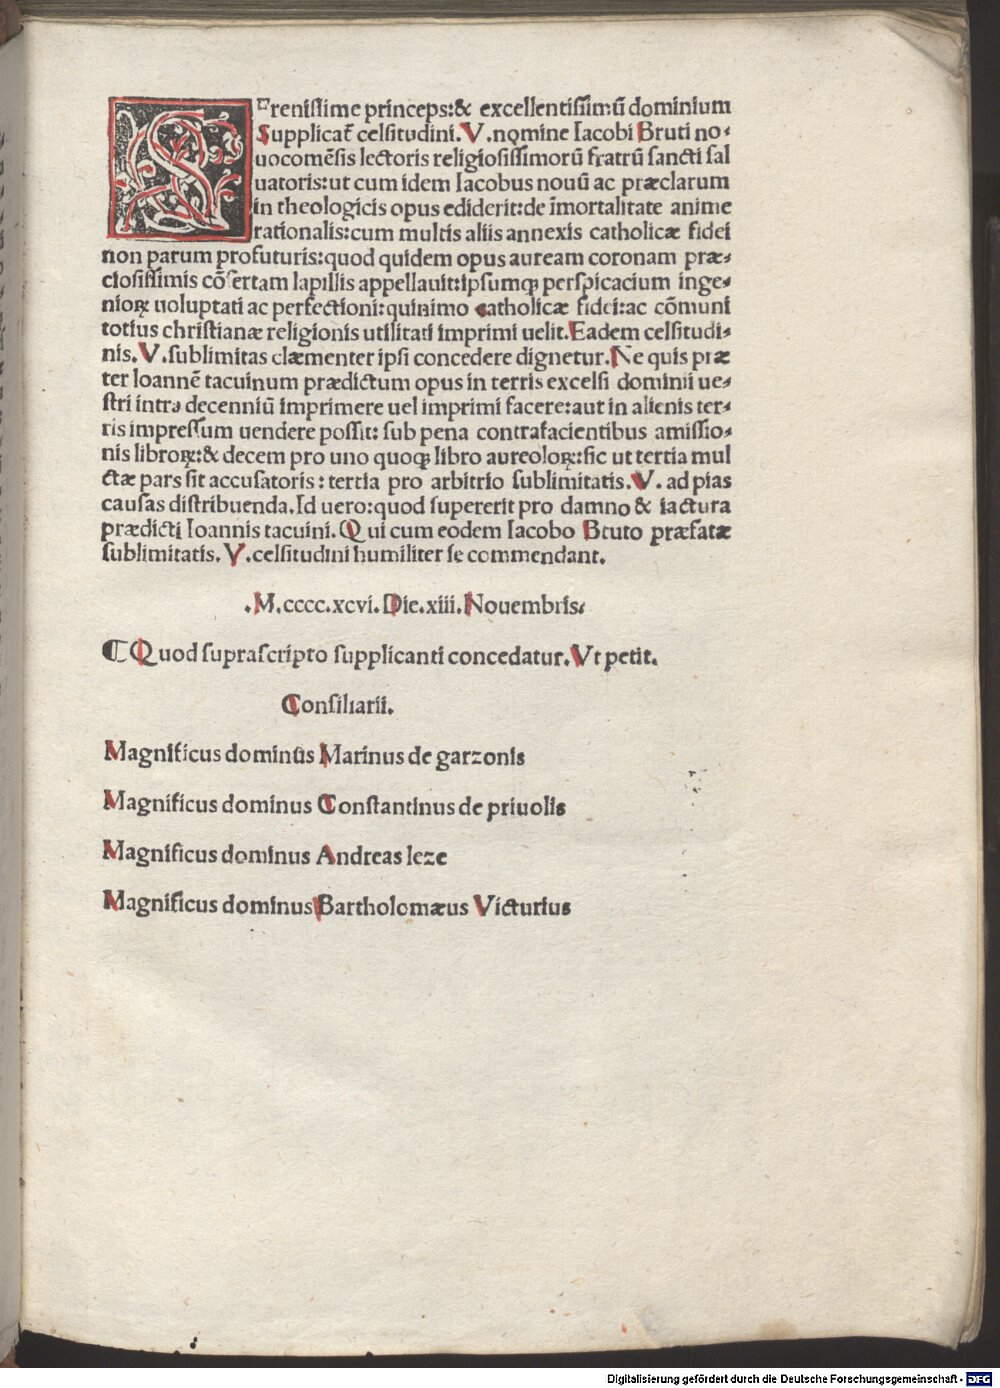 Sereniſſime princeps:& excellentiſſimū dominium
Supplicat̄ celſitudini.V.nomine Iacobi Bruti no⸗
uocomēſis lectoris religioſiſſimorū fratrū ſancti ſal
uatoris:ut cum idem Iacobus nouū ac præclarum
in theologicis opus ediderit:de īmortalitate anime
rationalis:cum multis aliis annexis catholicæ fidei
non parum profuturis:quod quidem opus auream coronam præ⸗
cioſiſſimis cōſertam lapillis appellauit:ipſumqꝫ perſpicacium inge⸗
nioꝝ uoluptati ac perfectioni:quinimo catholicæ fidei:ac cōmuni
totius chriſtianæ religionis utilitati imprimi uelit.Eadem celſitudi⸗
nis.V.ſublimitas clæmenter ipſi concedere dignetur.Ne quis præ
ter Ioannē tacuinum prædictum opus in terris excelſi dominii ue⸗
ſtri intra decenniū imprimere uel imprimi facere:aut in alienis ter⸗
ris impreſſum uendere poſſit: ſub pena contrafacientibus amiſſio⸗
nis libroꝝ:& decem pro uno quoqꝫ libro aureoloꝝ:ſic ut tertia mul
ctæ pars ſit accuſatoris: tertia pro arbitrio ſublimitatis.V. ad pias
cauſas diſtribuenda.Id uero:quod ſupererit pro damno & iactura
prædicti Ioannis tacuini.Qui cum eodem Iacobo Bruto præfatæ
ſublimitatis.V.celſitudini humiliter ſe commendant.
.M.cccc.xcvi.Die.xiii.Nouembris.
¶Quod ſupraſcripto ſupplicanti concedatur.Vt petit.
Conſiliarii.
Magnificus dominus Marinus de garzonis
Magnificus dominus Conſtantinus de priuolis
Magnificus dominus Andreas leze
Magnificus dominus Bartholomæus Victurius
Digitalisierung gefördert durch die Deutsche Forschungsgemeinschaft - DFG